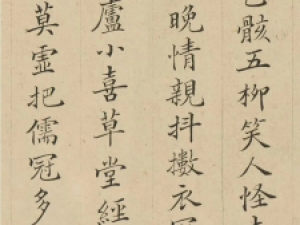 骸五柳笑人怪
晚情親抖擻衣
廬小喜草堂經
莫虛把儒冠多